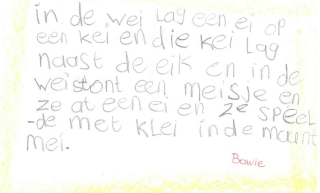 in de wei lag een ei op
een kei en die kei lag
naast de eik en in de
wei stont een meisje en
ze at een ei en ze speel
-de met klei in de maant
mei.
Bowie